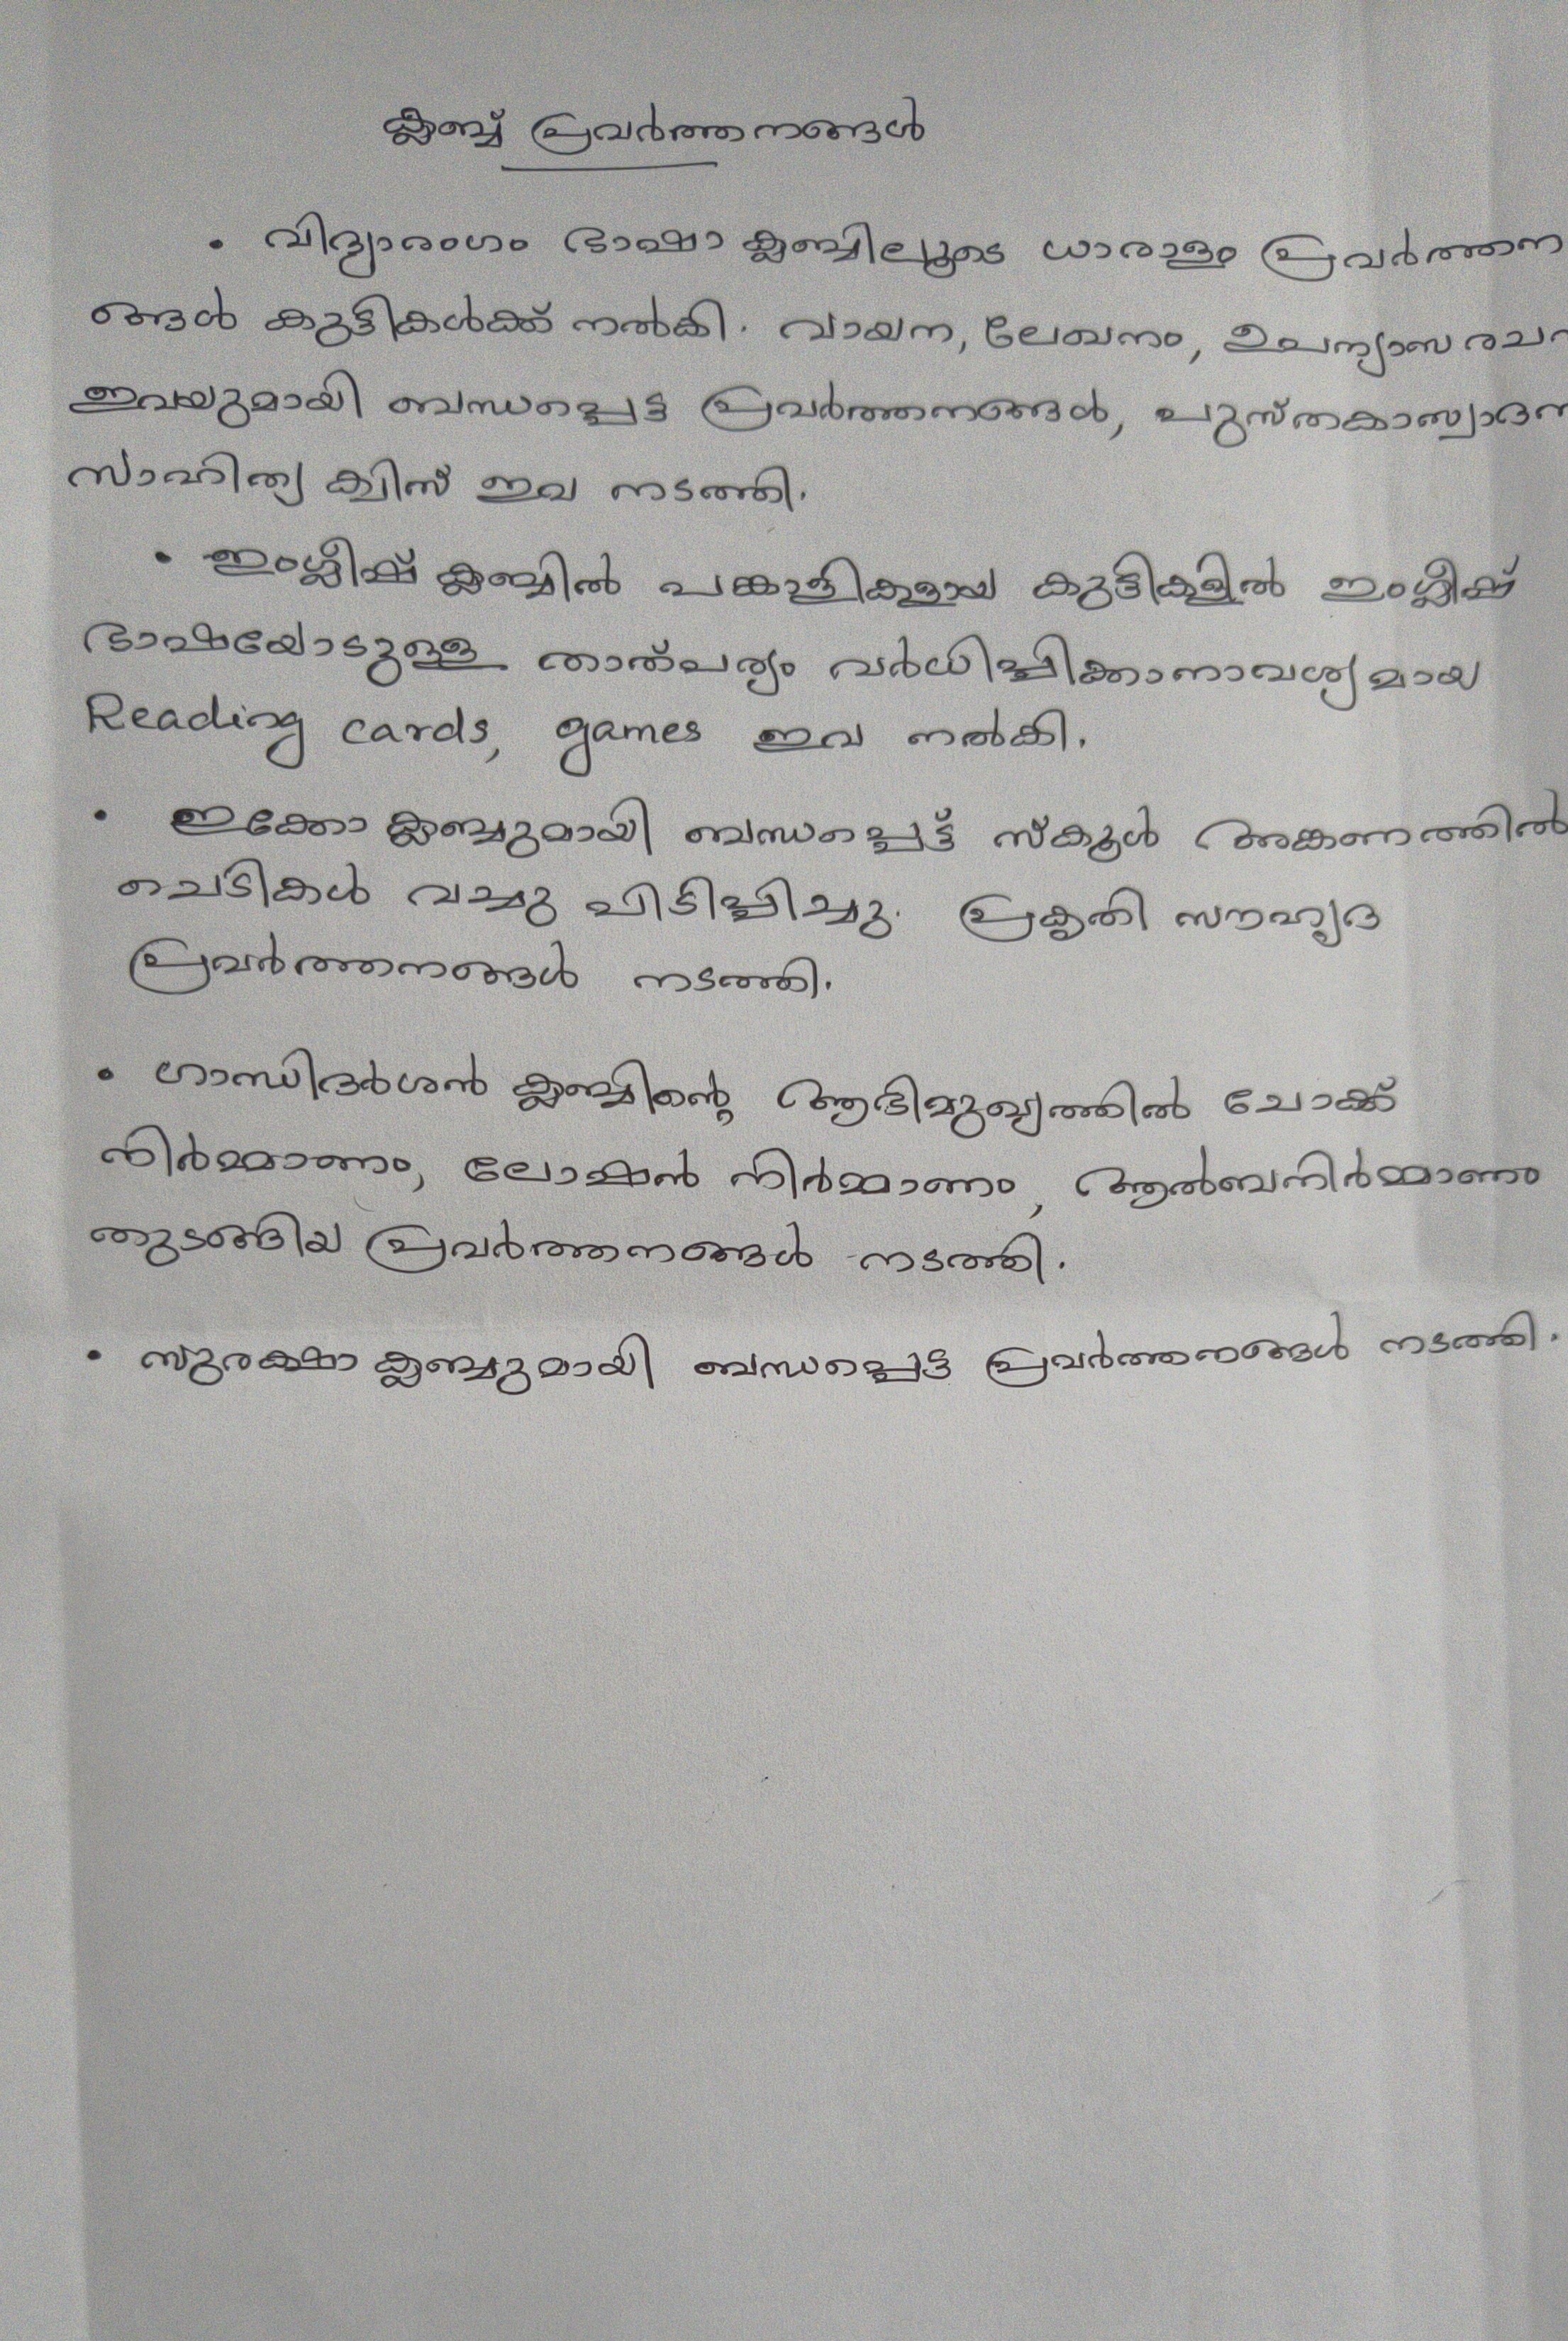 ക്ലബ്ബ് പ്രവർത്തനങ്ങൾ
• വിദ്യാരംഗം ഭാഷാ ക്ലബ്ബിലൂടെ ധാരാളം പ്രവർത്തന
ങ്ങൾ കുട്ടികൾക്ക് നൽകി. വായന, ലേഖനം, ഉപന്യാസ രചന
ഇവയുമായി ബന്ധപ്പെട്ട പ്രവർത്തനങ്ങൾ, പുസ്തകാസ്വാദന
സാഹിത്യ ക്വിസ് ഇവ നടത്തി.
• ഇംഗ്ലീഷ് ക്ലബ്ബിൽ പങ്കാളികളായ കുട്ടികളിൽ ഇംഗ്ലീഷ്
ഭാഷയോടുള്ള താത്പര്യം വർധിപ്പിക്കാനാവശ്യമായ
Reading cards, games ഇവ നൽകി.
• ഇക്കോ ക്ലബ്ബുമായി ബന്ധപ്പെട്ട് സ്കൂൾ അങ്കണത്തിൽ
ചെടികൾ വച്ചു പിടിപ്പിച്ചു. പ്രകൃതി സൗഹൃദ
പ്രവർത്തനങ്ങൾ നടത്തി.
• ഗാന്ധിദർശൻ ക്ലബ്ബിന്റെ ആഭിമുഖ്യത്തിൽ ചോക്ക്
നിർമ്മാണം, ലോഷൻ നിർമ്മാണം, ആൽബനിർമ്മാണം
തുടങ്ങിയ പ്രവർത്തനങ്ങൾ നടത്തി.
• സുരക്ഷാ ക്ലബ്ബുമായി ബന്ധപ്പെട്ട പ്രവർത്തനങ്ങൾ നടത്തി.